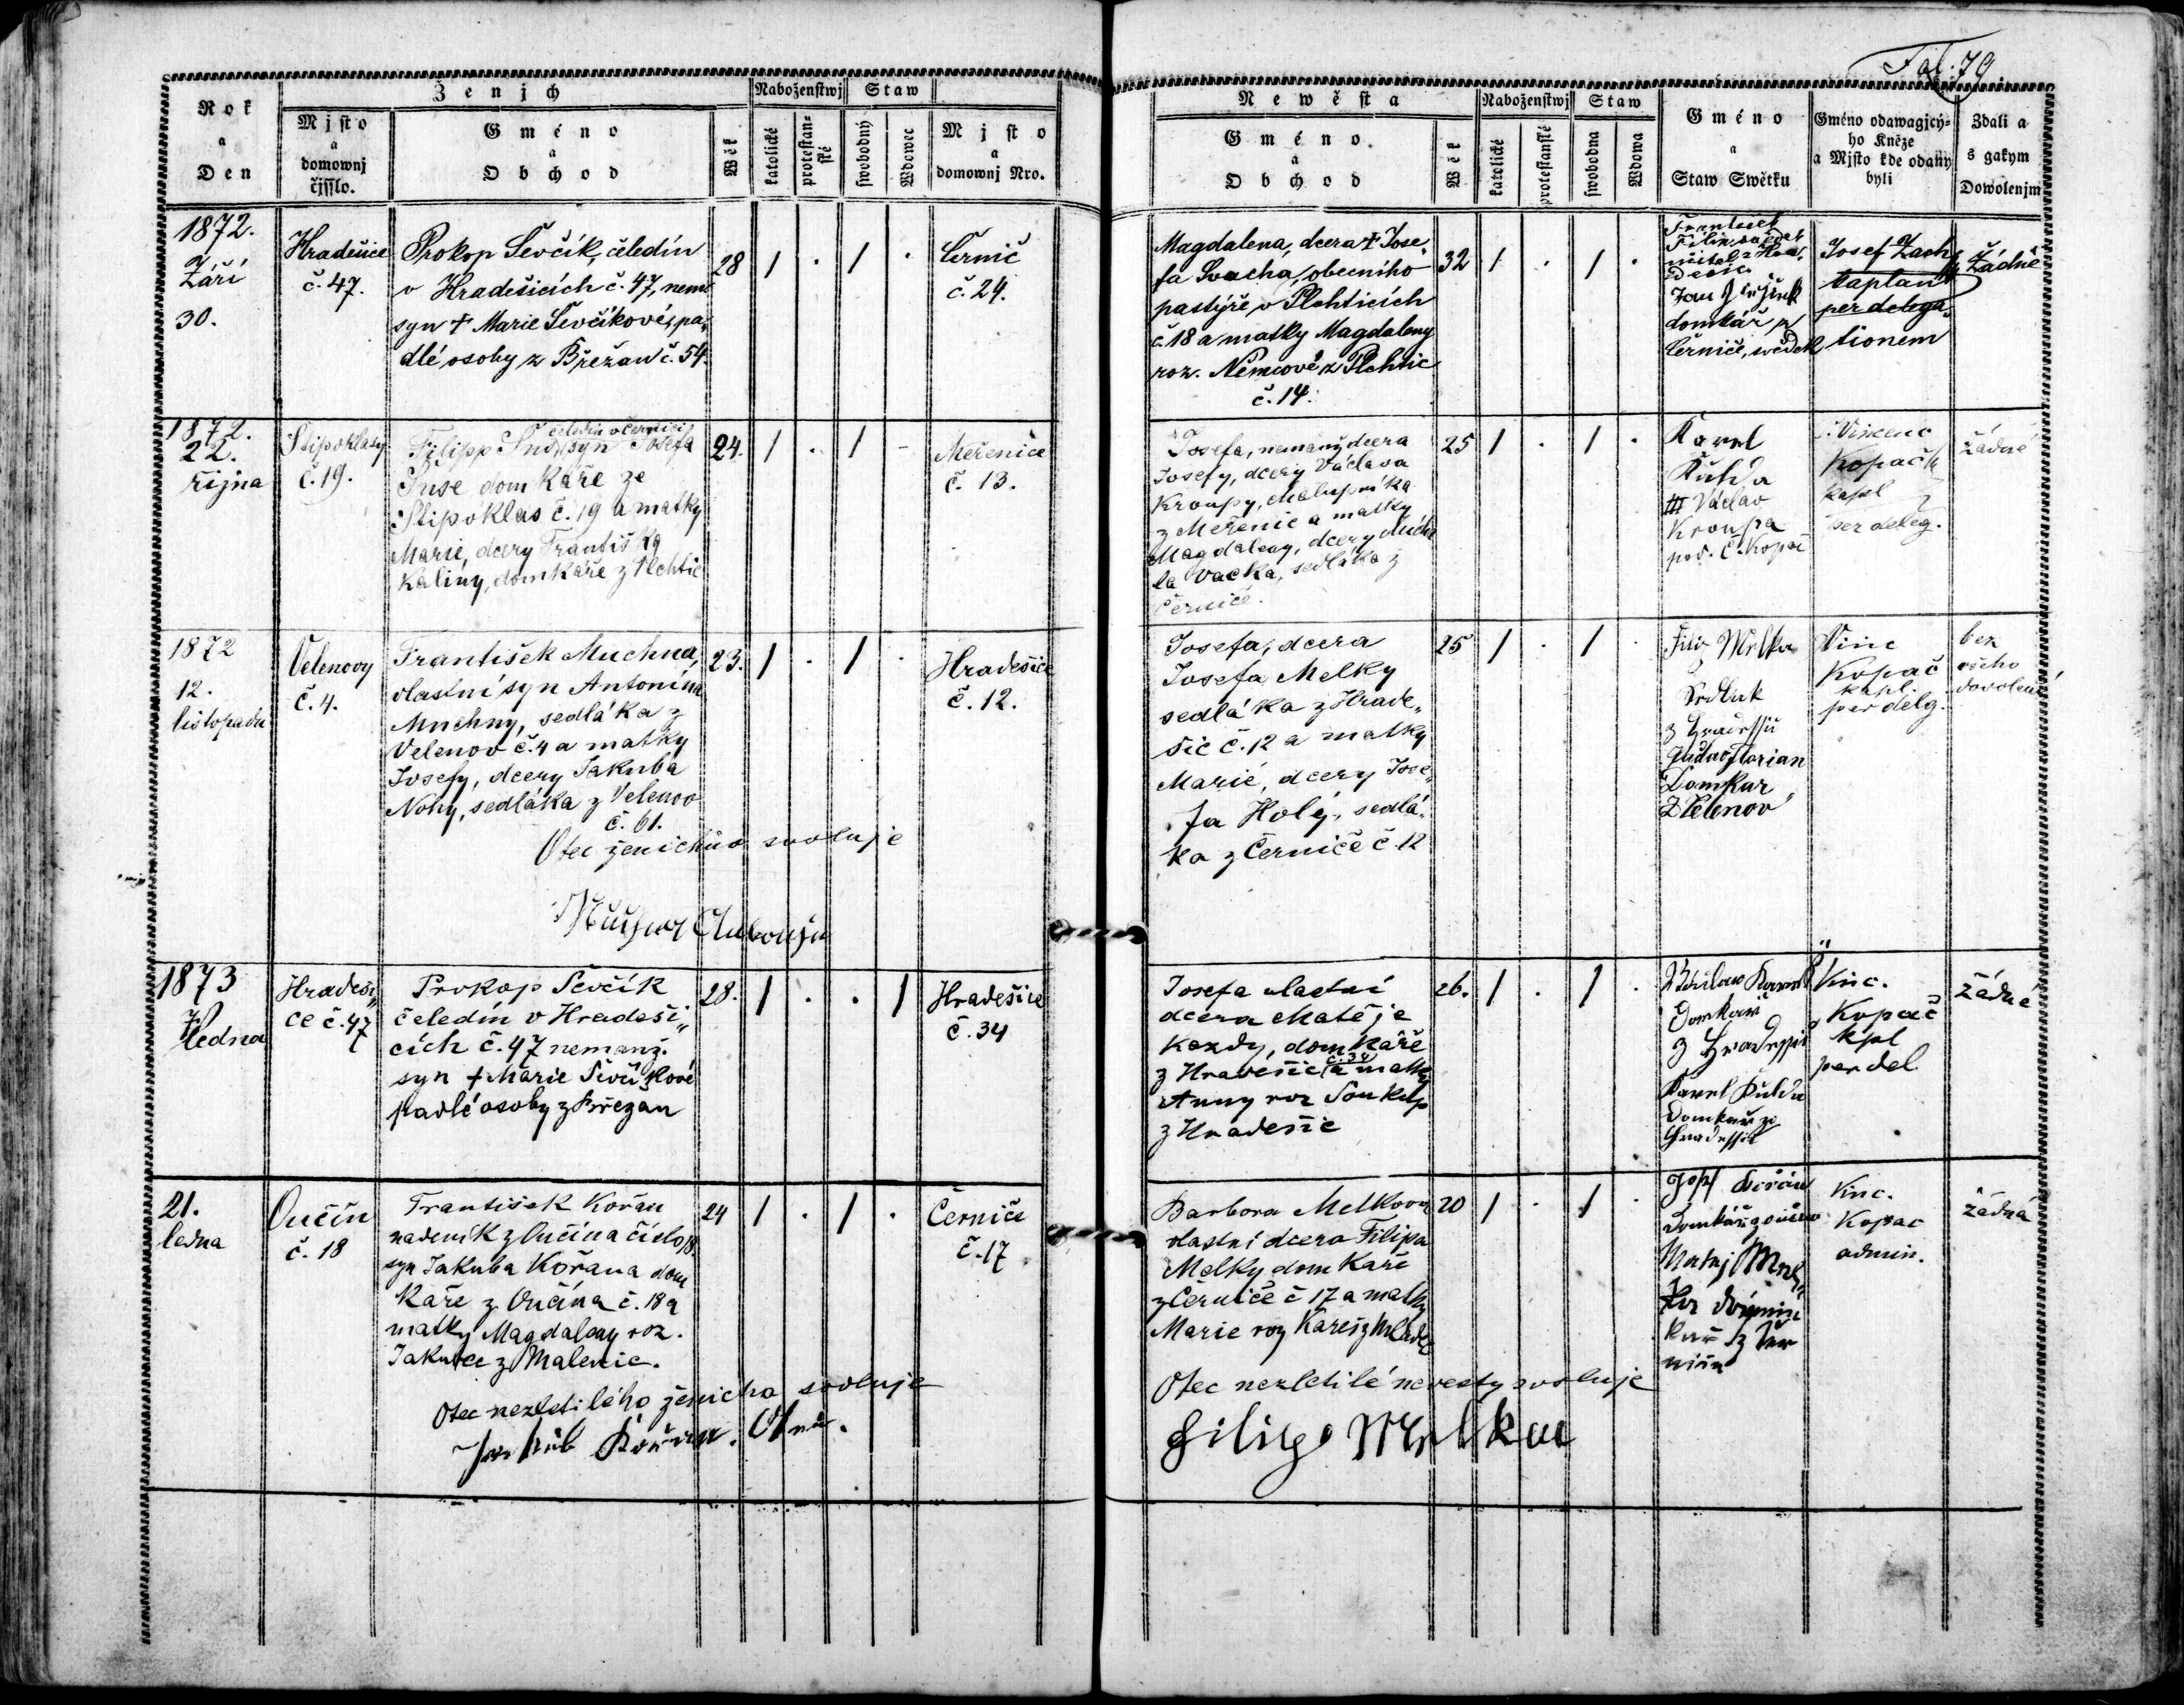 Fol. 79
Rok
a
Den
Ženich
Mjsto
a
domownj
čjslo.
Gméno
a
Obchod
Wěk
Naboženstwj
katolické
protestan-
ské
Staw
swobodný
Wdowec
Mjsto
a
domownj Nro.
Newěsta
Gméno.
a
Obchod
Wěk
Naboženstwj
katolické
protestanské
Staw
swobodna
Wdowa
Gméno
a
Staw Swětku
Gméno odawagjcý-
ho Kněze
a Mjsto kde odaný
byli
Zdali a
s gakym
Dowolenjm
1872.
Září
30.
Hradešice
č. 47.
Prokop Ševčík, čeledín
v Hradešicích č. 47, nem.
syn † Marie Ševčíkové, pa„
dlé osoby z Břežan č. 54.
28 / . / .
Černič
č. 24.
Magdalena, dcera † Jose„
fa Svacha, obecního
pastýře v Plchticích
č. 18 a matky Magdaleny
roz. Němcové z Plchtic
č. 14.
32 / . / .
František
domkář z
Černiče, svědek
Josef Zach
kaplan
per delega„
tionem
Žádné
1872.
22.
října
Štipoklasy
č. 19.
čeledín v Černiči
Filipp syn Josefa
domkáře ze
Štipoklas č. 19 a matky
Marie, dcery Františka
Kaliny, domkáře z Plchtic
24. / . / -
Měřenice
č. 13.
Josefa, nemanž. dcera
Josefy, dcery Václava
Kroupy, chalupníka
z Měřenic a matky
Magdaleny, dcery Micha
la Vacka, sedláka z
Černiče.
25 / . / .
Karel
Kulda
### Václav
Kroupa
pod. Č. Kopač
Vincenc
Kopač
kapl
per deleg.
žádné
1872
12.
listopadu
Velenovy
č. 4.
František Muchna,
vlastní syn Antonína
Muchny, sedláka z
Velenov č. 4 a matky
Josefy, dcery Jakuba
Nohy, sedláka z Velenov
č. 61.
23. / . / .
Hradešice
č. 12.
Otec ženichův svoluje
Muchna Antonjn
Josefa, dcera
Josefa Melky
sedláka z Hrade„
šic č. 12 a matky
Marie, dcery Jose„
fa Holý, sedlá„
ka z Černiče č. 12
25 / . / .
Filip Melka
Sedlak
z Hradessic
Florian
Domkař
Z Velenov
Vinc
Kopač
kapl.
per delg.
bez
všeho
dovolení
1873
7.
ledna
Hradeši„
ce č. 47
Prokop Ševčík
čeledín v Hradeši„
cích č. 47 nemanž.
syn † Marie Ševčíkové
padlé osoby z Břežan
28. / . . /
Hradešice
č. 34
Josefa vlastní
dcera Matěje
Kozdy, domkáře
č. 34
z Hradešic a matky
Anny roz Soukup
z Hradešic
26. / . / .
Domkař
z Hradessic
Karel Kulda
Domkař ze
Hradessic
Vinc.
Kopač
kpl
per del.
žádné
21.
ledna
Ončín
č. 18
František Kořán
nadeník z Ončína číslo 18
syn Jakuba Kořana dom
káře z Ončína č. 18 a
matky Magdaleny roz.
z Malenic.
24 / . / .
Černiče
č. 17
Otec nezletilého ženicha svoluje
Jakub Kořan.
Barbora Melkova
vlastní dcera Filipa
Melky domkaře
z Černiče č 17 a matky
Marie roz Kareš z
20 / . / .
Josef Kořán
Matej Mel„
ka
Vinc.
Kopac
admin.
žádná
Otec nezletilé nevesty svoluje
Filip Melka